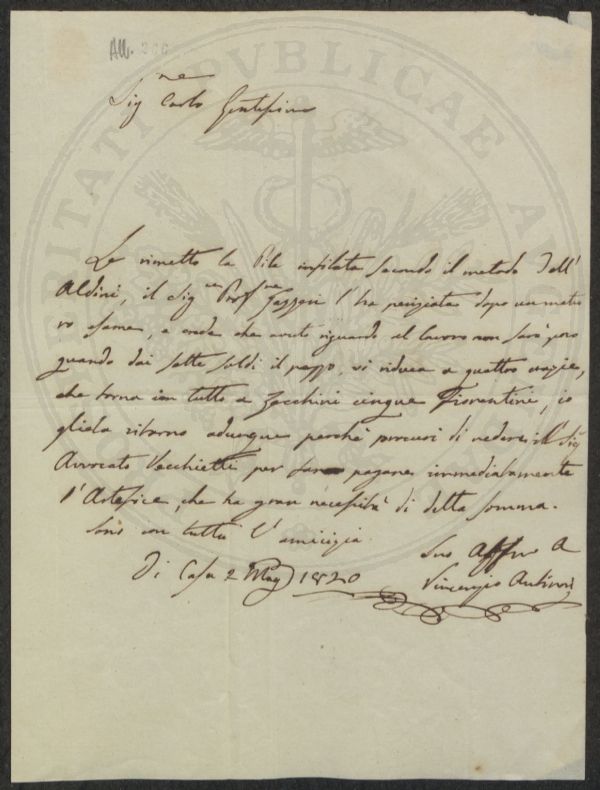 All.
Sig.ne Carlo
Le rimetto la Pila infilata secondo il metodo dell'
Aldini, il Sig.re Prof.re Gazzeri l'ha periziata dopo un matu
ro esame, e crede che avuto riguardo al lavoro non sarà poco
quando dai sette soldi il pezzo, si riduca a quattro crazie,
che torna in tutto a Zecchini cinque Fiorentini, io
gliela ritorno adunque perchè procuri di vedere il Sig
Avvocato Vecchietti per far pagare immediatamente
l'Artefice, che ha gran necessità di detta somma.
Sono con tutta l'amicizia
Suo Affmo A
Di Casa 2 Mag 1820
Vincenzio Antinori
PUBLICAE